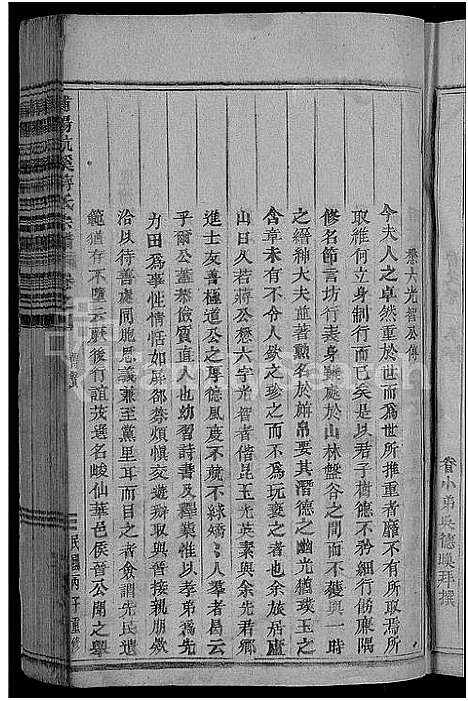 眷小弟吳德興拜撰
懋六光智公傳
今夫人之卓然重於世而為世所推重者靡不有所取焉所
取維何立身制行而已矣是以君子猶德不矜細行勵廉隅
修名節言坊行表身雖處於山林盤谷之間而不獲與一時
之縉紳大夫並著勲名於旂帛要其潛德之幽光猶璞玉之
含章未有不令人欽之珍之而不為玩褻之也余旅居廬
山日久若蔣公懋六字光智者偕昆玉光英素與余光君鄉
進士友善極道公之厚德風度不就不絿矯矯人羣者曷云
乎爾公蓋恭儉質直人也幼習詩書及釋業惟以孝弟為先
力田為事性情恬如屏郤棼煩慎交遊辯取與晉接親朋款
洽以待善處同胞思義兼至黨里耳而目之者僉謂先民遺
範猶存不墮云厥後行誼茂選名峻仙華邑侯晉公聞之舉
氏宗譜
卷之
傳贊
民國丙子重修